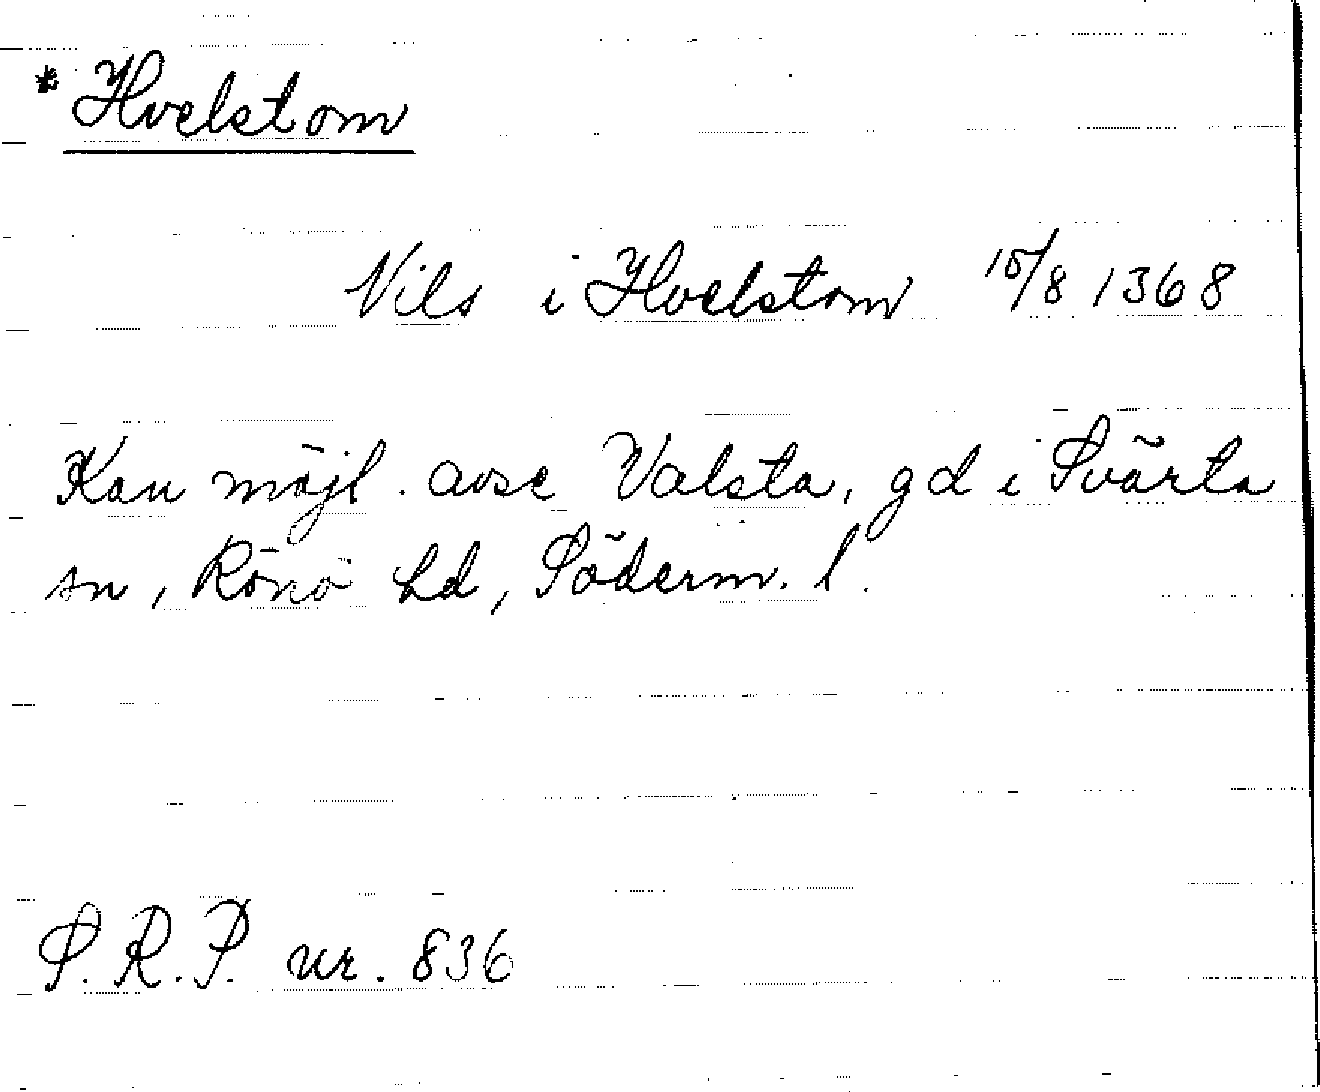 * Hvelstom
Nils i Hvelstom 15/8 1368
Kan möjl. avse Valsta, gd i Svärta
sn, Rönö hd, Söderm. l.
S.R.P. nr. 836